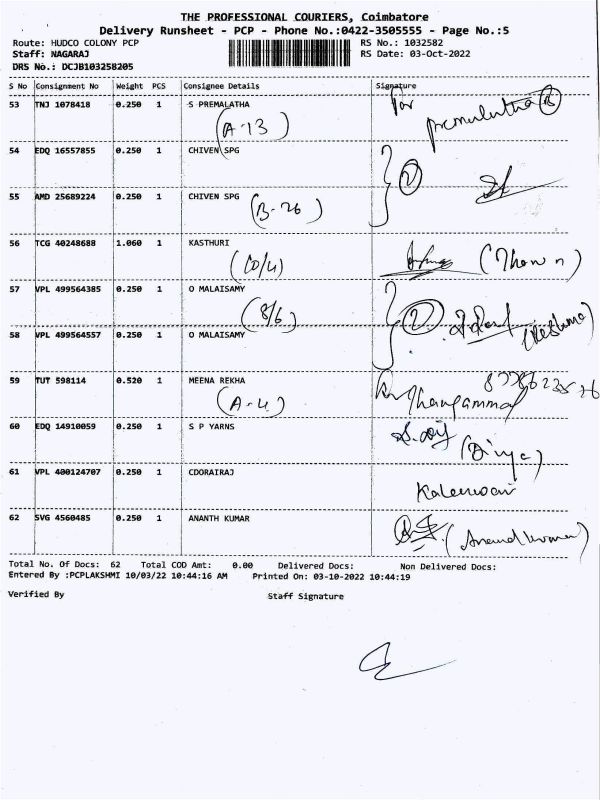 THE PROFESSIONAL COURIERS, Coimbatore
Delivery Runsheet - PCP - Phone No.:0422-3505555 - Page No.:5
Route: HUDCO COLONY PCP RS No.: 1032582
Staff: NAGARAJ RS Date: 03-Oct-2022
DRS No.: DCJB103258205
S No Consignment No Weight PCS Consignee Details Signature
53 TNJ 1078418 0.250 1 S PREMALATHA for premalatha
(A-13)
54 EDQ 16557855 0.250 1 CHIVEN SPG
2
55 AMD 25689224 0.250 1 CHIVEN SPG
(B-26)
56 TCG 40248688 1.060 1 KASTHURI
(D/4)
57 VPL 499564385 0.250 1 O MALAISAMY
(8/6) 2 (Reshma)
58 VPL 499564557 0.250 1 O MALAISAMY
59 TUT 598114 0.520 1 MEENA REKHA
(A-4) Thangammal
60 EDQ 14910059 0.250 1 S P YARNS
(Divya)
61 VPL 400124707 0.250 1 CDORAIRAJ
Kaleeswari
62 SVG 4560485 0.250 1 ANANTH KUMAR
(Anandkumar)
Total No. Of Docs: 62 Total COD Amt: 0.00 Delivered Docs: Non Delivered Docs:
Entered By :PCPLAKSHMI 10/03/22 10:44:16 AM Printed On: 03-10-2022 10:44:19
Verified By Staff Signature